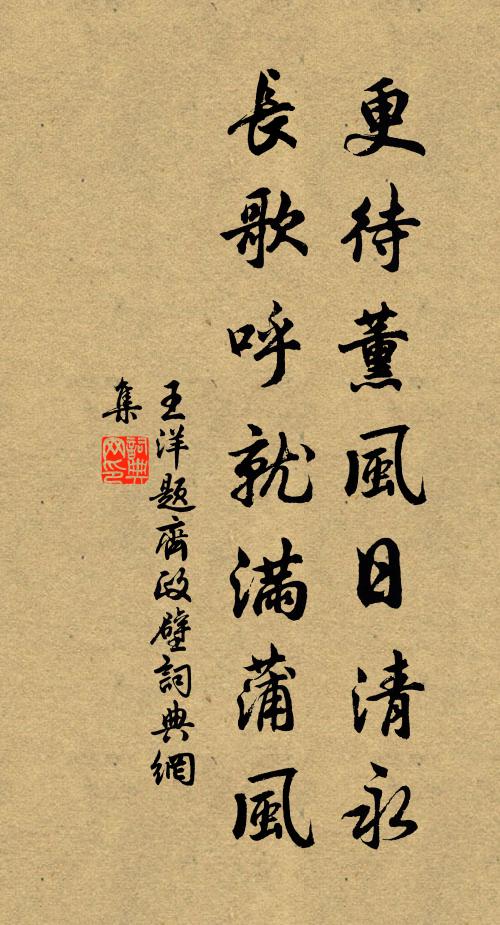 更待薰風日清永
長歌呼就滿蒲風
王洋題齊政壁詞典網
集
詞典網印